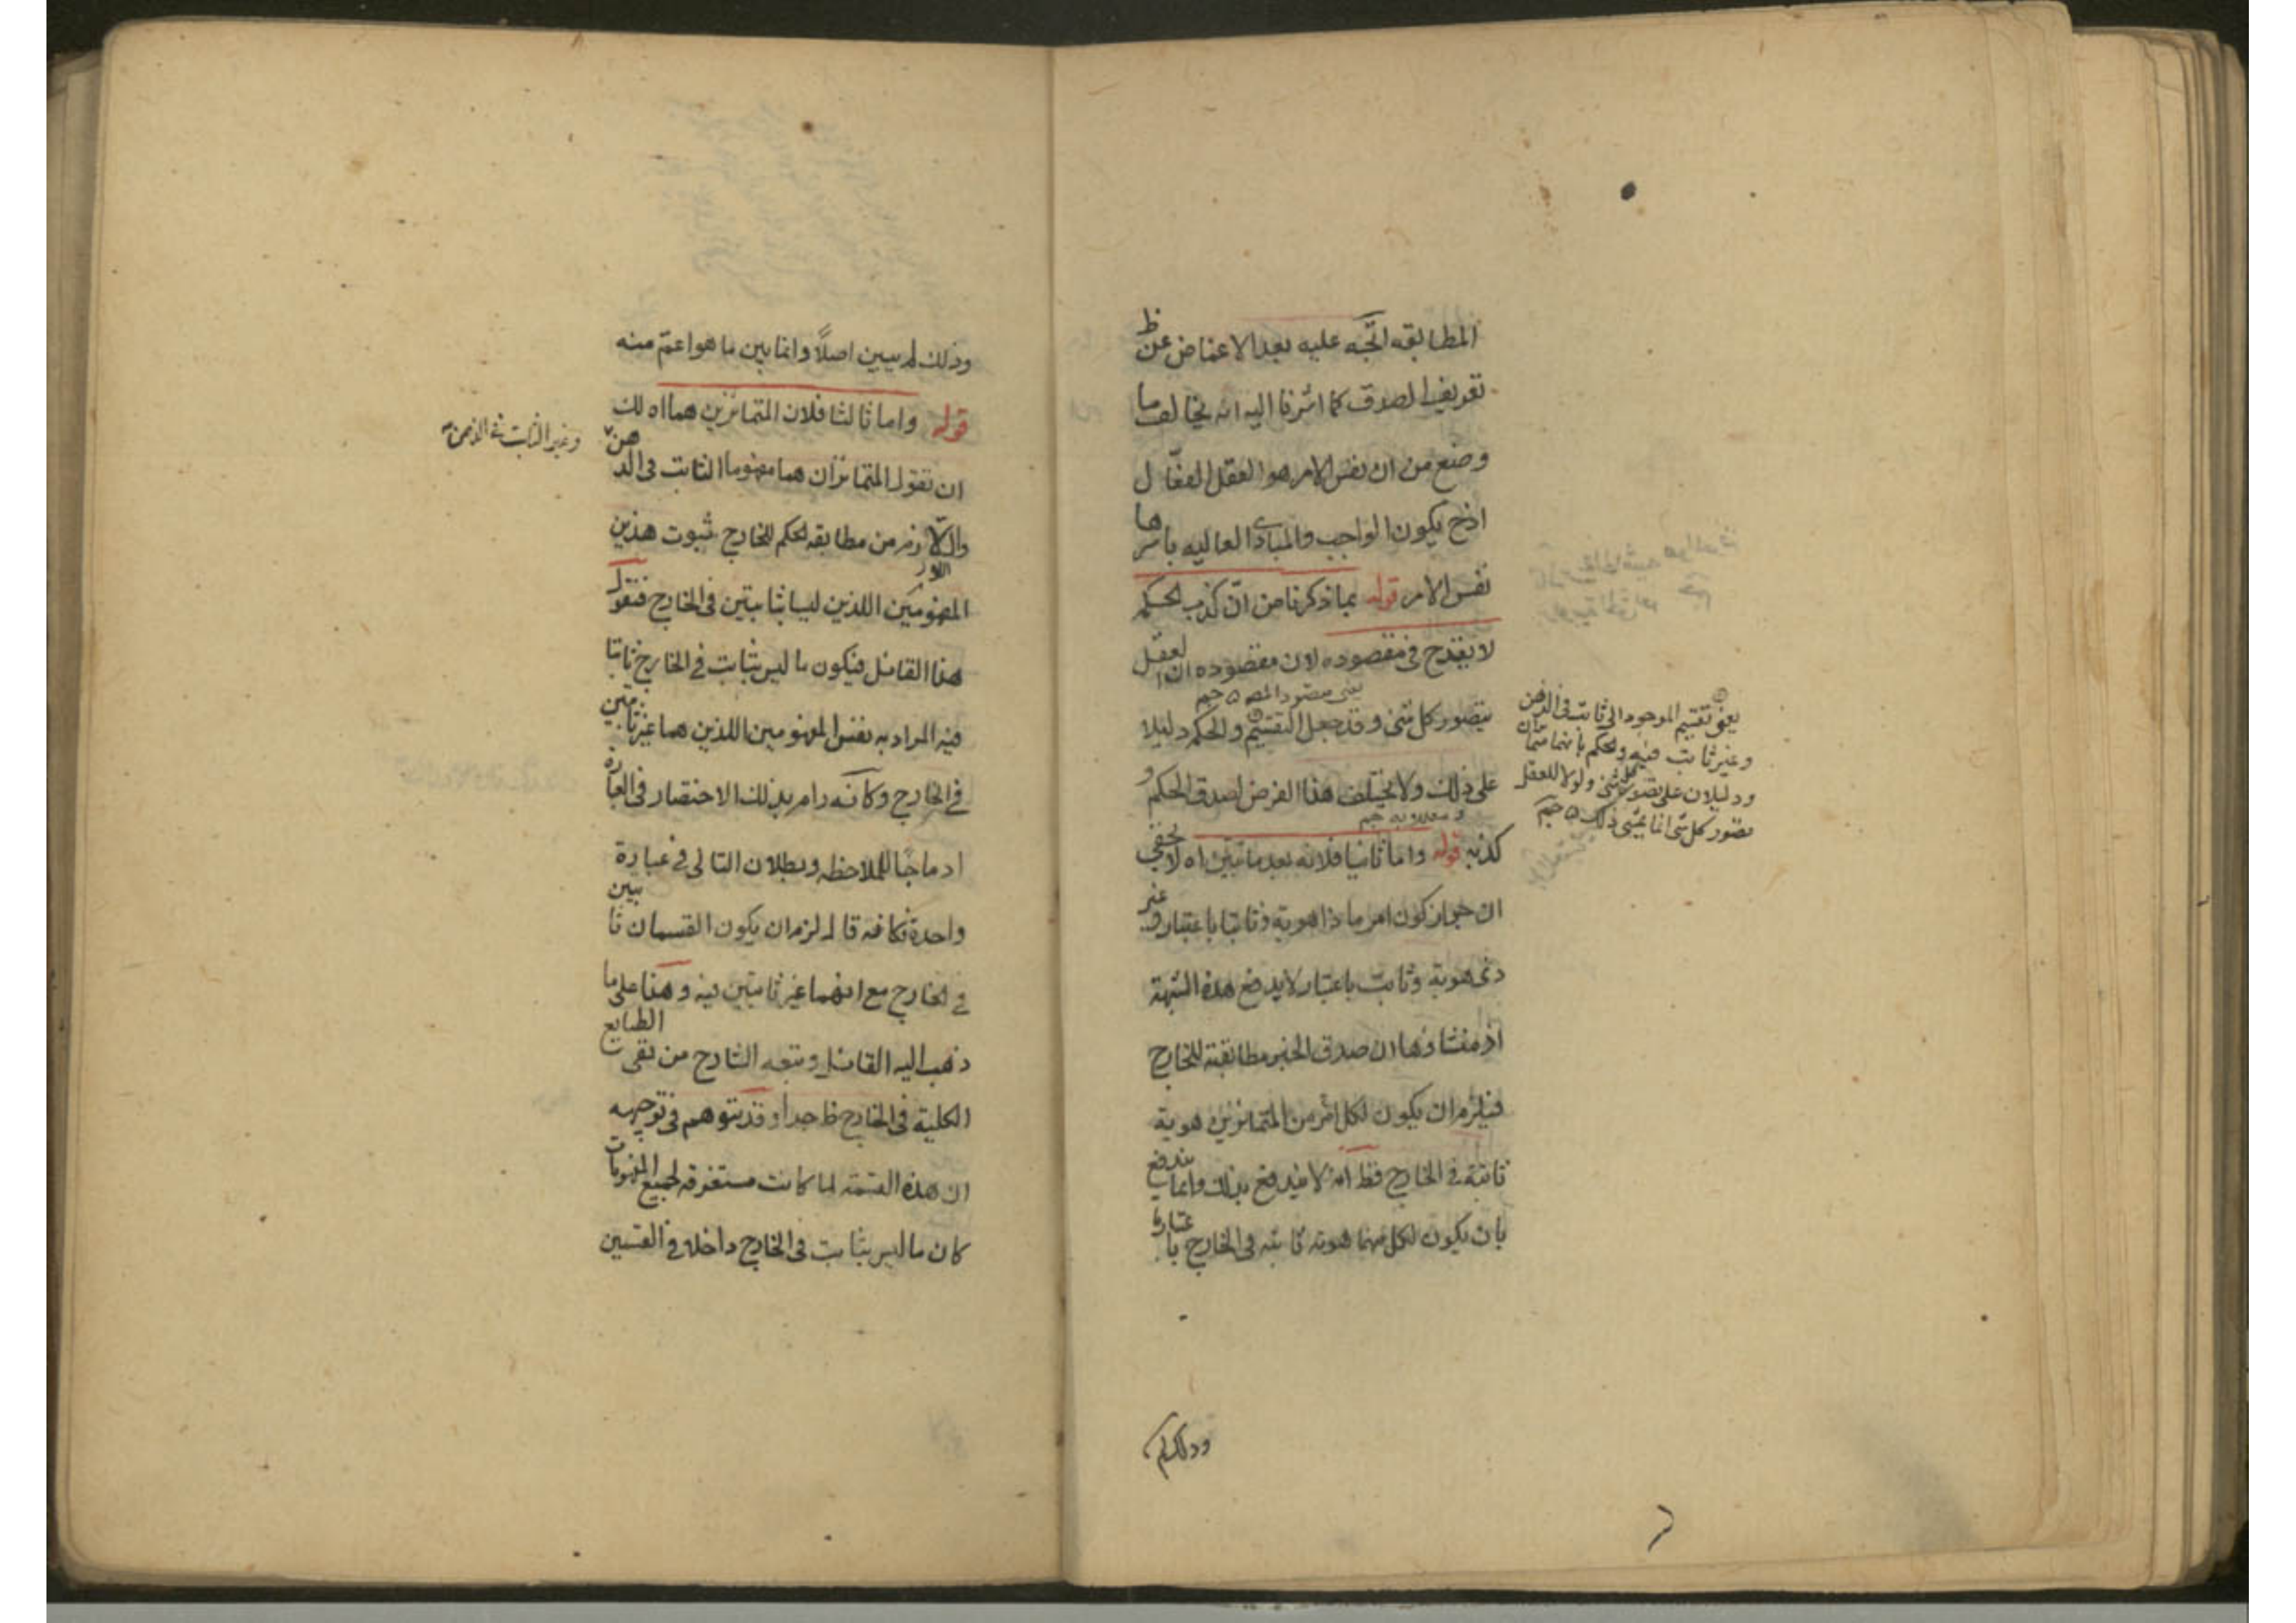 المطابقه اتجه عليه بعد الاغماض عن ظ
تعريف الصدق كما اشرنا اليه انه يخالف ما
وضع من ان نفس الامر هو العقل الفعّال
اذ ح يكون الواجب والمبادى العاليه باسرها
نفس الامر قوله بما ذكرنا من انّ كذب الحكم
لا يقدح فى مقصوده لان مقصوده ان العقل
يعنى مقصود المص
يتصور كل شئ وقد جعل التقسيم والحكم دليلا
على ذلك ولا يختلف هذا الفرض لصدق الحكم و
كذبه قوله واما ثانيا فلانه بعد ما تبين اه لا يخفى
ان جواز كون امر ما ذا هوية وثابتا باعتبار وغير
ذى هوية وثابت باعتبار لا يدفع هذه الشبهة
اذ منشاؤها ان صدق الخبر مطابقته للخارج
فيلزم ان يكون لكل امر من المتمايزين هوية
ثابتة فى الخارج فظ انه لا يندفع بذلك وانما يندفع
بان يكون لكل منهما هوية ثابته فى الخارج باعتبار ما
يعنى تقسيم الموجود الى ثابت فى الذهن
وغير ثابت فيه والحكم بانهما متمايزان
ودليلان على تصور كل شئ ولولا للعقل
تصور كل شئ انما يمشى ذلك
وذلك لم
وذلك لم يبين اصلاً وانما بين ما هو اعمّ منه
قوله واما ثالثا فلان المتمايزين هما اه لك
ان تقول المتمايزان هما مفهوما الثابت فى الذهن
وغير الثابت فى الذهن
واللازم من مطابقه الحكم للخارج ثبوت هذين
المفهومين اللذين ليسا بثابتين فى الخارج فقول
هذا القائل فيكون ما ليس بثابت فى الخارج ثابتا
فيه المراد به نفس المفهومين اللذين هما غير ثابتين
فى الخارج وكانّه رام بذلك الاختصار فى العبارة
ادماجًا للملاحظه وبطلان التالى فى عبارة
واحدة فكانه قال لزم ان يكون القسمان ثابتين
فى الخارج مع انهما غير ثابتين فيه وهذا على ما
ذهب اليه القائل وتبعه الشارح من نفى الطبايع
الكلية فى الخارج ظ جدا وقد يتوهم فى توجيهه
ان هذه القسمة لما كانت مستغرقه لجميع المفهومات
كان ما ليس بثابت فى الخارج داخلا فى القسمين